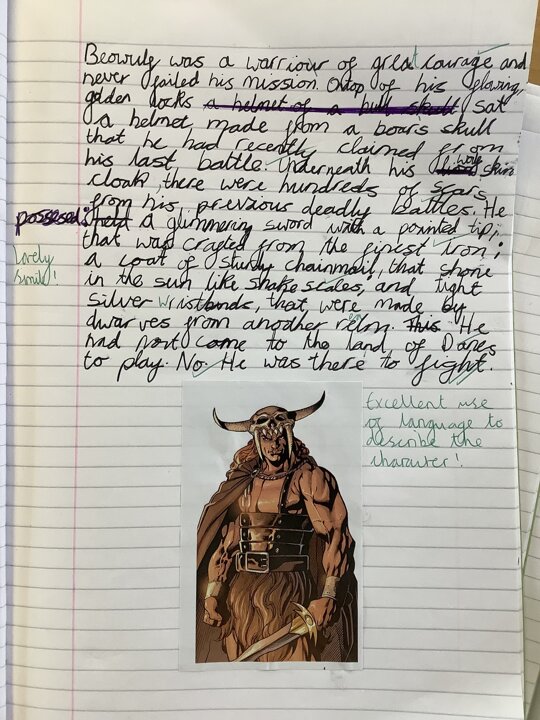 Beowulf was a warriour of great courage and
never failed his mission. Ontop of his glowing,
golden locks a helmet of a bull skull sat
a helmet made from a boars skull
that he had recently claimed from
his last battle. Underneath his wolf skin
cloak, there were hundreds of scars
from his previous deadly battles. He
possesed: held a glimmering sword with a pointed tip;
that was crafted from the finest iron;
Lovely
simile!
a coat of sturdy chainmail, that shone
in the sun like snake scales, and tight
silver wristbands, that were made by
dwarves from another relm. This He
had not come to the land of Danes
to play. No. He was there to fight.
Excellent use
of language to
describe the
character!